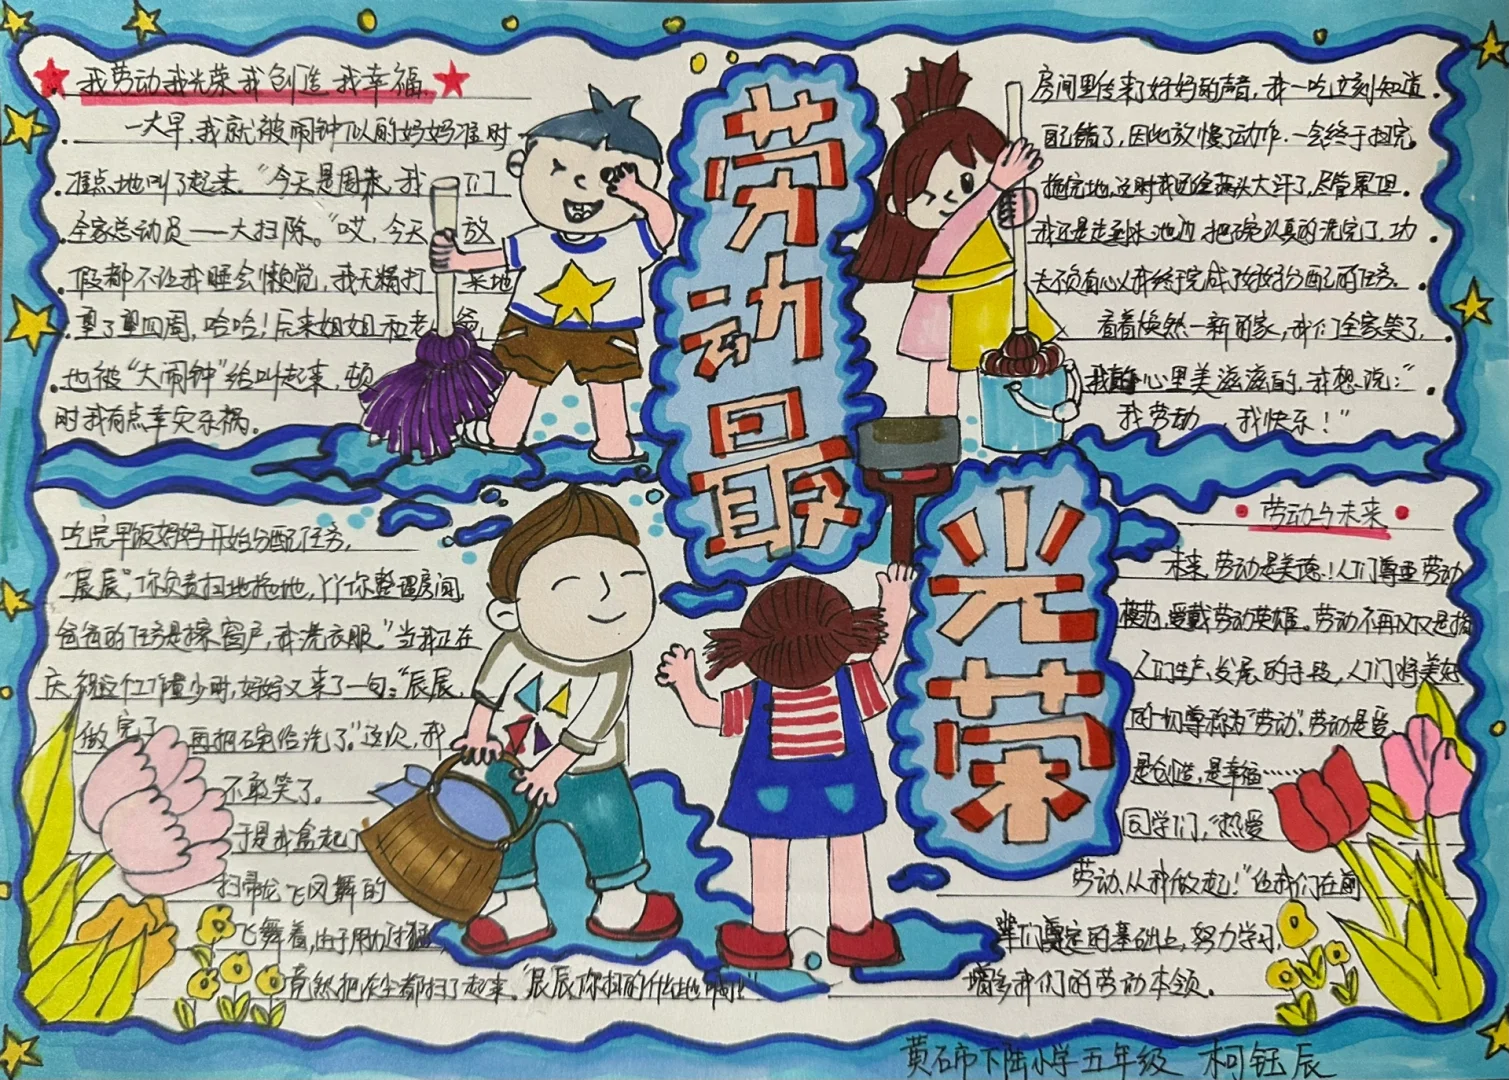 我劳动我光荣我创造我幸福
一大早,我就被闹钟似的妈妈准时
准点地叫了起来。“今天是周末,我们
全家总动员——大扫除。”哎,今天放
假都不让我睡会懒觉,我无精打采地
望了望四周,哈哈!后来姐姐和老爸
也被“大闹钟”给叫起来,顿
时我有点幸灾乐祸。
吃完早饭妈妈开始分配任务,
“辰辰”,你负责扫地拖地,丫丫你整理房间,
爸爸的任务是擦窗户,我洗衣服。”当我正在
庆祝这个工作量少时,妈妈又来了一句:“辰辰,
做完了再把碗给洗了。”这次,我
不敢笑了。
于是我拿起了
扫帚龙飞凤舞的
飞舞着,由于用力过猛
竟然把灰尘都扫了起来。“辰辰,你扫的什么地
房间里传来了妈妈的声音,我一吃立刻知道
自己错了,因此放慢了动作.一会终于扫完。
拖完地,这时我已经满头大汗了,尽管累但
我还是走到水池边,把碗认真的洗完了,功
夫不负有心人我终于完成了妈妈分配的任务。
看着焕然一新的家,我们全家笑了,
我的心里美滋滋的,我想说:“
我劳动,我快乐!”
劳动最
光荣
劳动与未来
未来,劳动是美德!人们尊重劳动
模范,爱戴劳动英雄。劳动不再仅仅是指
人们生产、发展的手段,人们将美好
的一切尊称为“劳动”。劳动是爱
是创造,是幸福……
同学们,“热爱
劳动、从我做起!”让我们在前
辈们奠定的基础上,努力学习,
增多我们的劳动本领。
黄石市下陆小学五年级 柯钰辰